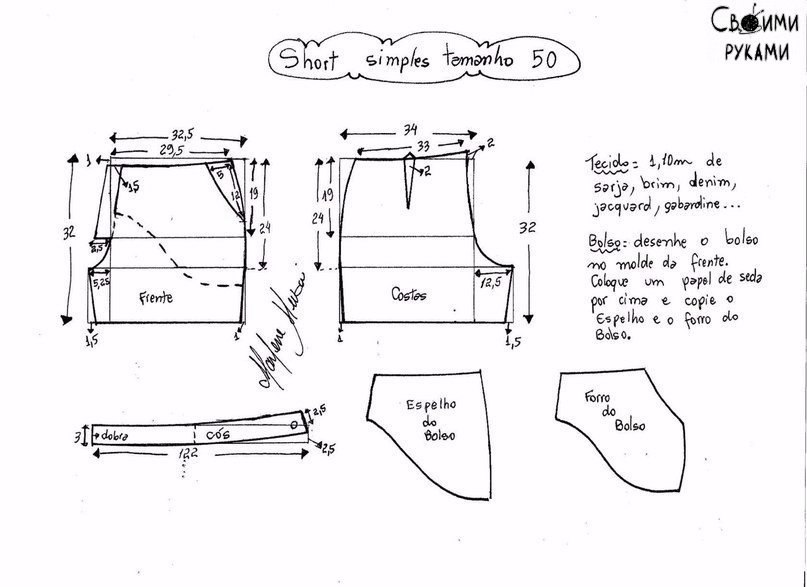 Своими
руками
Short simples tamanho 50
32,5
29,5
1
1,5
5
12
19
24
32
2,5
5,25
Frente
1,5
1
34
33
2
2
19
24
32
12,5
Costas
1
1,5
Tecido = 1,10m de
sarja, brim, denim,
jacquard, gabardine...
Bolso = desenhe o bolso
no molde da frente.
Coloque um papel de seda
por cima e copie o
Espelho e o forro do
Bolso.
3
dobra
cós
2,5
2,5
122
Espelho
do
Bolso
Forro
do
Bolso